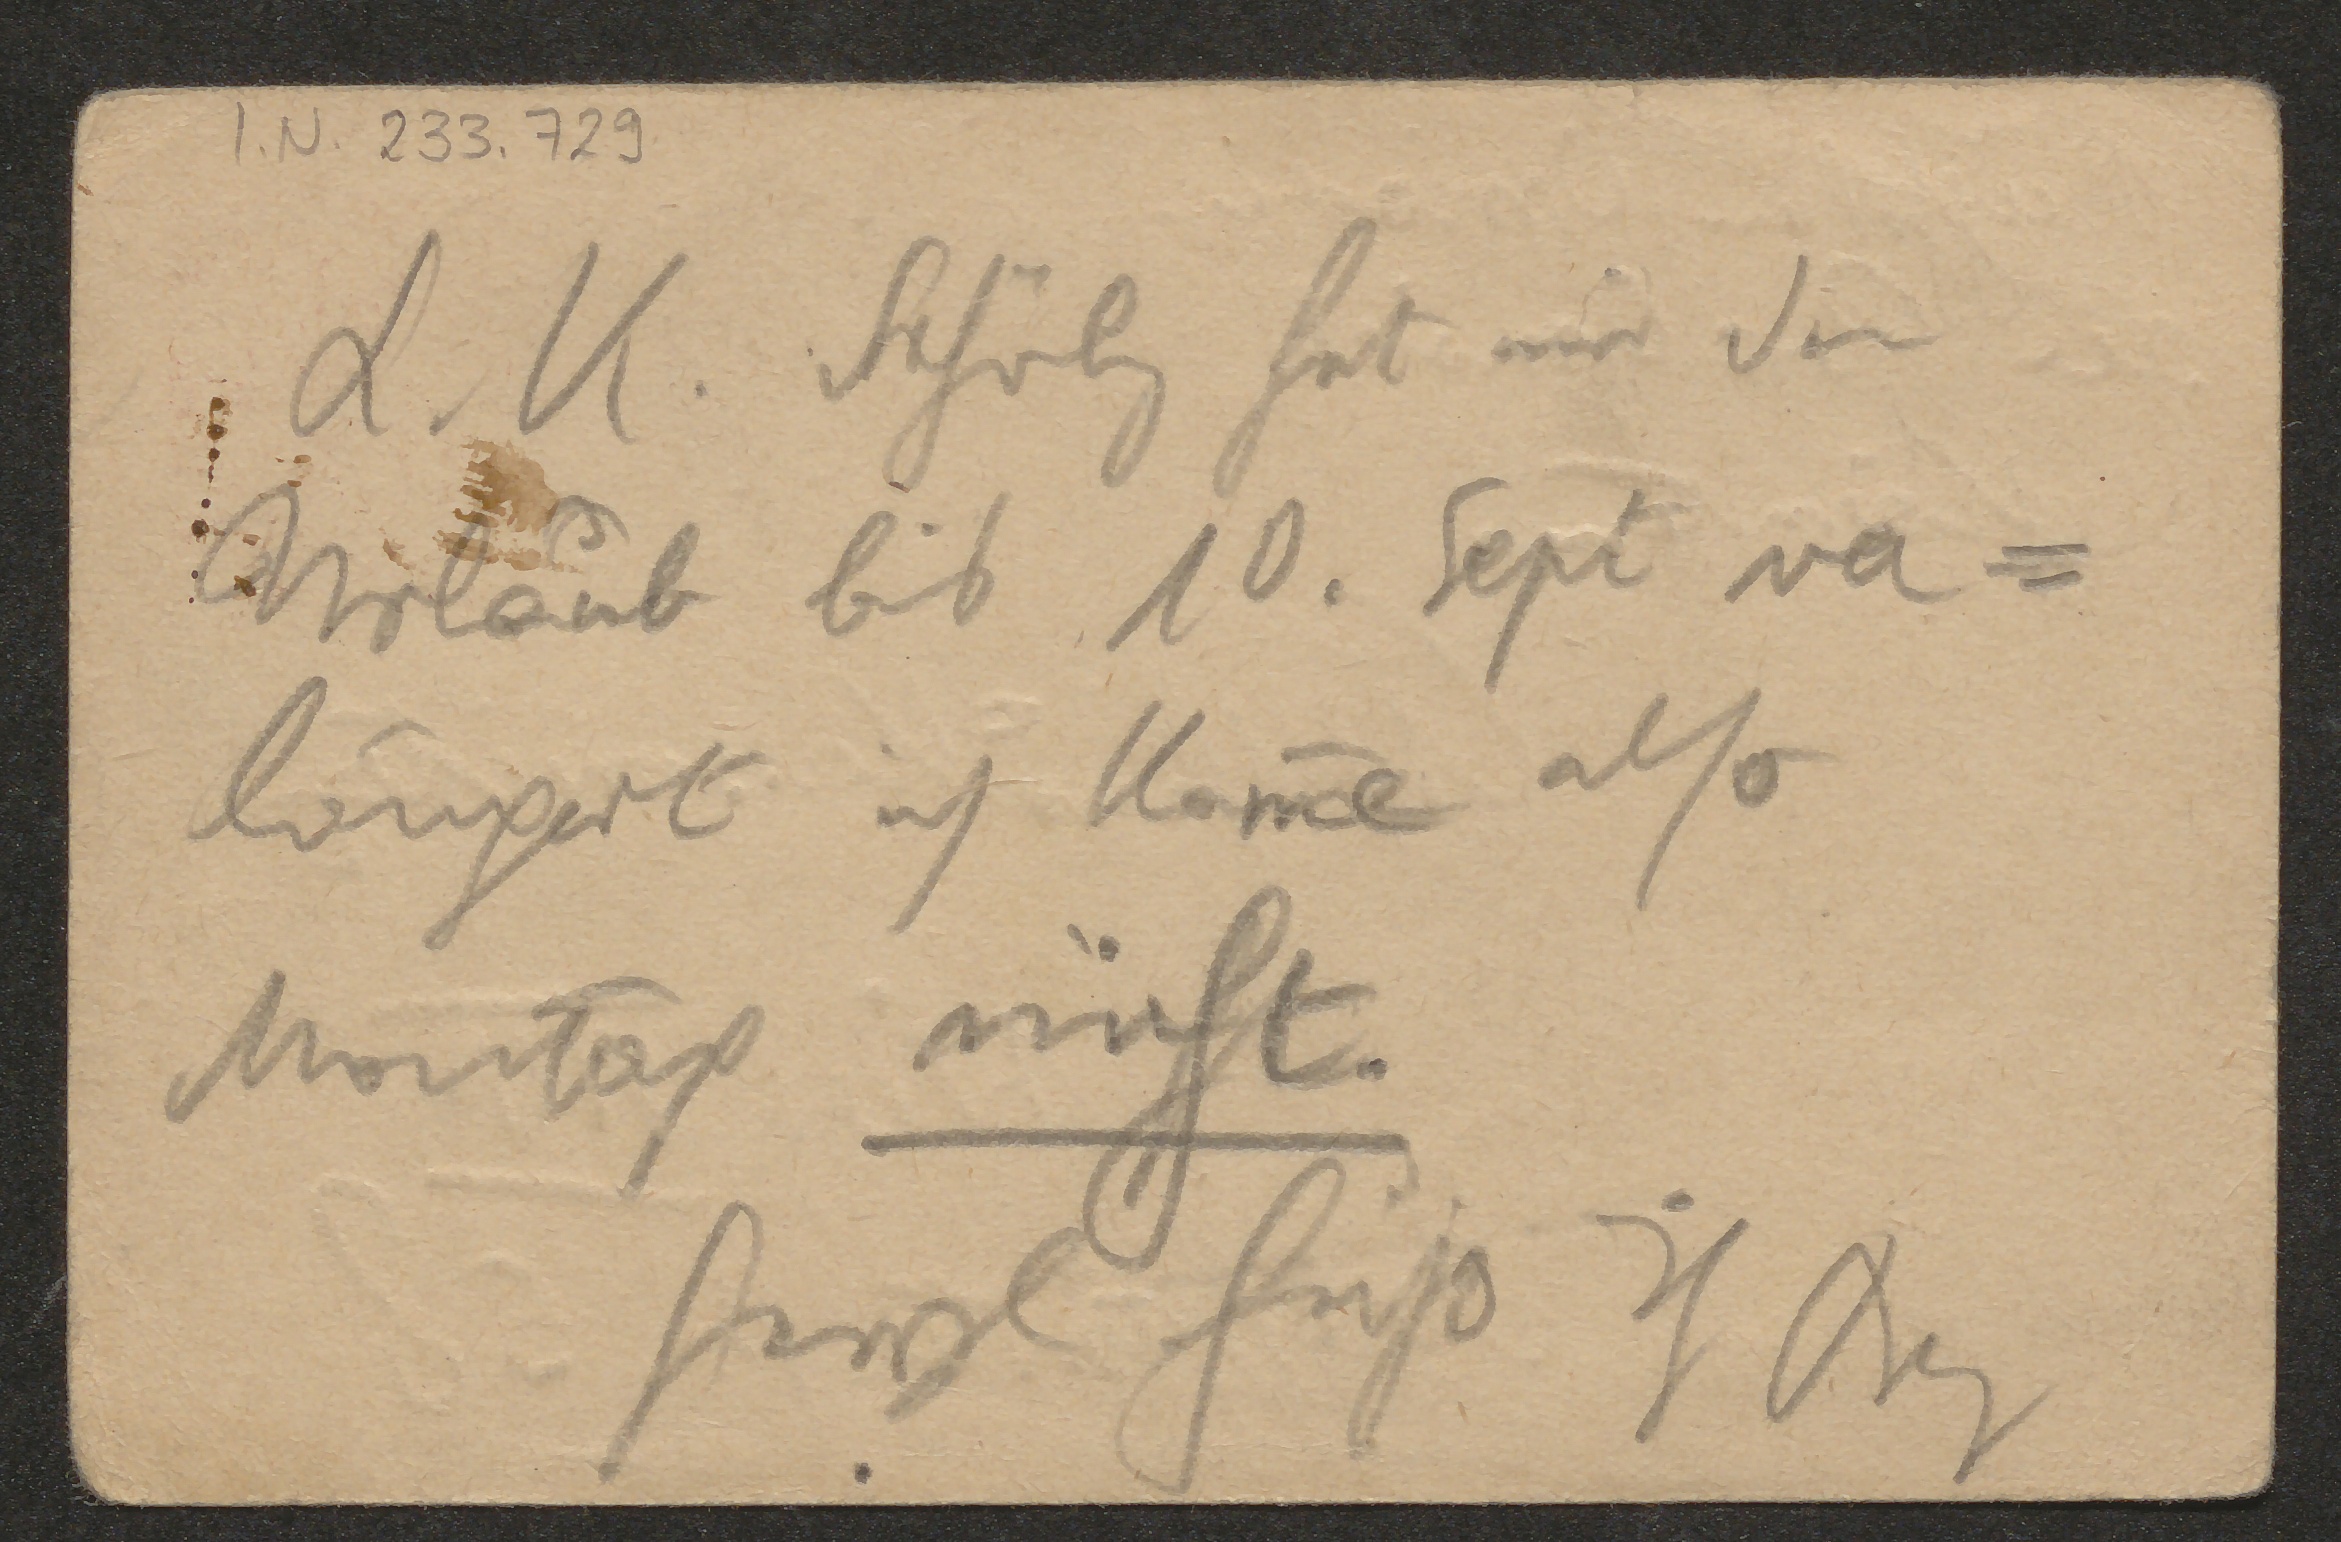 I.N. 233.729
L. K. Schölz hat mir den
Urlaub bis 10. Sept ver=
längert ich komme also
Montag nicht.
Herzl